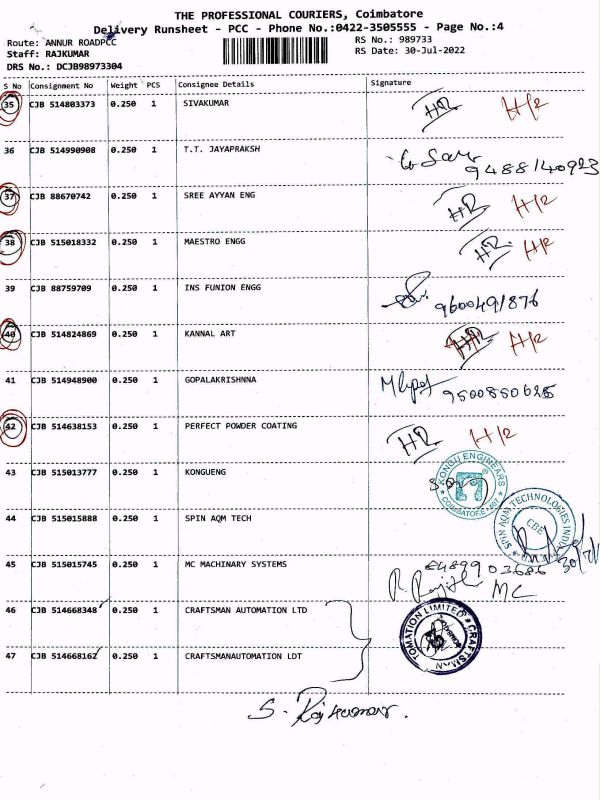 THE PROFESSIONAL COURIERS, Coimbatore
Delivery Runsheet - PCC - Phone No.:0422-3505555 - Page No.:4
Route: ANNUR ROADPCC RS No.: 989733
Staff: RAJKUMAR RS Date: 30-Jul-2022
DRS No.: DCJB98973304
S No Consignment No Weight PCS Consignee Details Signature
35 CJB 514803373 0.250 1 SIVAKUMAR HR H/R
36 CJB 514990908 0.250 1 T.T. JAYAPRAKSH
9488140923
37 CJB 88670742 0.250 1 SREE AYYAN ENG HR H/R
38 CJB 515018332 0.250 1 MAESTRO ENGG HR H/R
39 CJB 88759709 0.250 1 INS FUNION ENGG
9600491876
40 CJB 514824869 0.250 1 KANNAL ART H/R
41 CJB 514948900 0.250 1 GOPALAKRISHNNA
42 CJB 514638153 0.250 1 PERFECT POWDER COATING HR H/R
43 CJB 515013777 0.250 1 KONGUENG
KONGU ENGINEARS
44 CJB 515015888 0.250 1 SPIN AQM TECH
SPIN AQM TECHNOLOGIES
CBE
45 CJB 515015745 0.250 1 MC MACHINARY SYSTEMS
MC
46 CJB 514668348 0.250 1 CRAFTSMAN AUTOMATION LTD
TOMATION LIMITED ★ CRAFTSMAN
47 CJB 514668162 0.250 1 CRAFTSMANAUTOMATION LDT
S. Rajkumar.